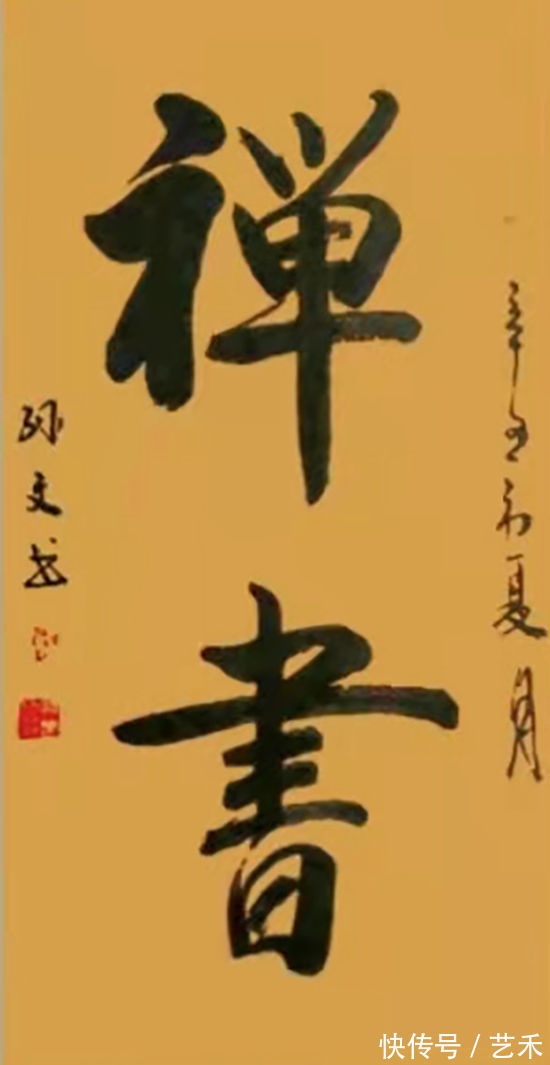 辛丑初夏月
禅書
孙文书
快传号 / 艺禾